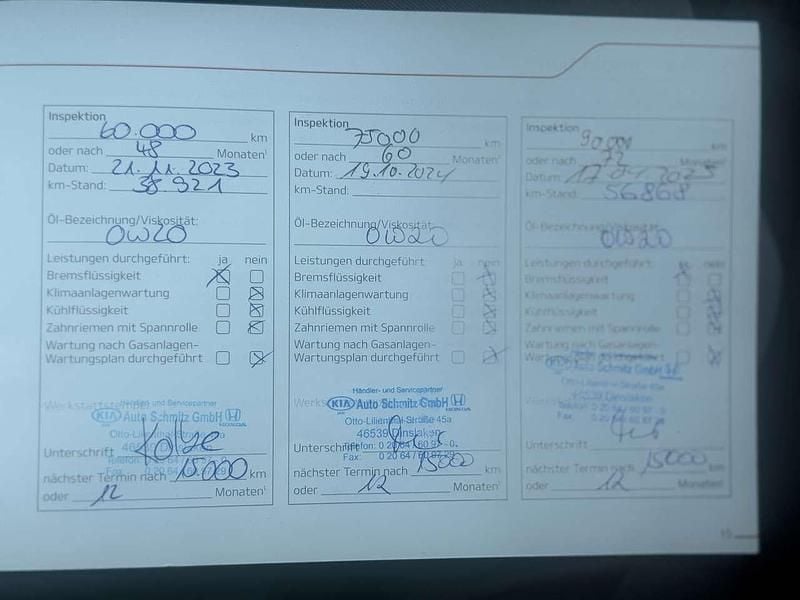 Inspektion
60.000 km
oder nach 48 Monaten¹
Datum: 21.11.2023
km-Stand: 38.921
Öl-Bezeichnung/Viskosität:
0W20
Leistungen durchgeführt: ja nein
Bremsflüssigkeit
Klimaanlagenwartung
Kühlflüssigkeit
Zahnriemen mit Spannrolle
Wartung nach Gasanlagen-
Wartungsplan durchgeführt
Händler- und Servicepartner
KIA Auto Schmitz GmbH HONDA
Otto-Lilienthal-Straße 45a
Unterschrift
nächster Termin nach 15.000 km
oder 12 Monaten¹
Inspektion
75000 km
oder nach 60 Monaten¹
Datum: 19.10.2024
km-Stand:
Öl-Bezeichnung/Viskosität:
0W20
Leistungen durchgeführt: ja nein
Bremsflüssigkeit
Klimaanlagenwartung
Kühlflüssigkeit
Zahnriemen mit Spannrolle
Wartung nach Gasanlagen-
Wartungsplan durchgeführt
Händler- und Servicepartner
KIA Auto Schmitz GmbH HONDA
Otto-Lilienthal-Straße 45a
46539 Dinslaken
Unterschrift
Telefon: 0 20 64 / 60 97 - 0
Fax: 0 20 64 /
nächster Termin nach 15000 km
oder 12 Monaten¹
Inspektion
90.000 km
oder nach 72 Monaten¹
Datum:
km-Stand: 56868
Öl-Bezeichnung/Viskosität:
0W20
Leistungen durchgeführt: ja nein
Bremsflüssigkeit
Klimaanlagenwartung
Kühlflüssigkeit
Zahnriemen mit Spannrolle
Wartung nach Gasanlagen-
Wartungsplan durchgeführt
Auto Schmitz GmbH
Otto-Lilienthal-Straße 45a
46539 Dinslaken
Telefon: 0 20 64 / 60 97 - 0
Fax
Unterschrift
nächster Termin nach 15000 km
oder 12 Monaten¹
15